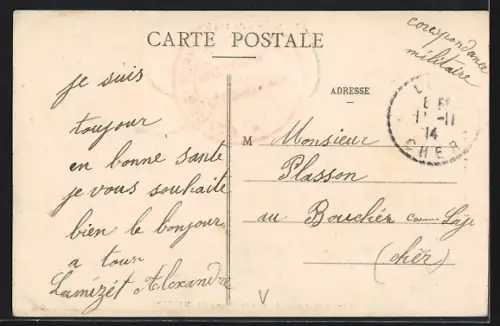 CARTE POSTALE
corespondance
militaire
ADRESSE
je suis
toujour
en bonne sante
je vous souhaite
bien le bonjour
a tous
Lamizét Alexandre
M Monsieur
Plasson
au Bouchér
(chér)
11-11
14
CHER
V